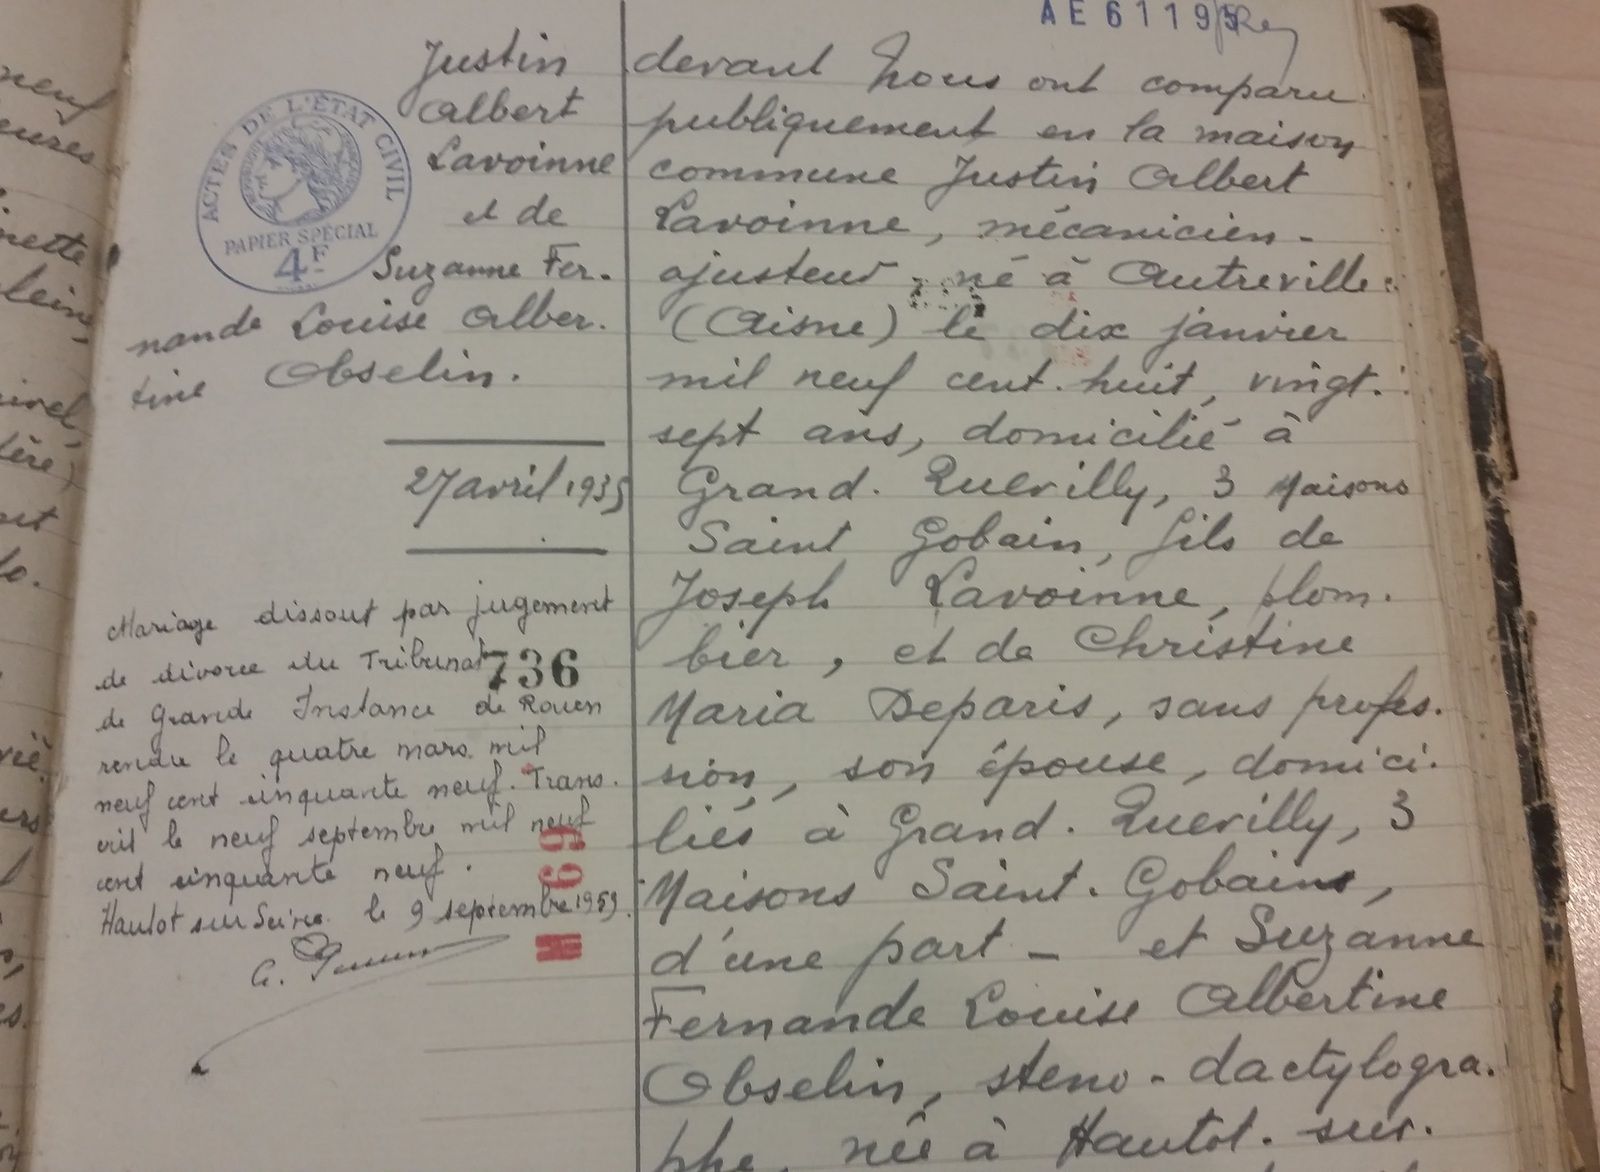 AE 61195
Justin
Albert
Lavoinne
et de
Suzanne Fer-
nande Louise Alber-
tine Obselin.
27 avril 1935
ACTES DE L'ÉTAT CIVIL
PAPIER SPÉCIAL
4F
Mariage dissout par jugement
de divorce du Tribunal
736
de Grande Instance de Rouen
rendu le quatre mars mil
neuf cent cinquante neuf. Trans-
crit le neuf septembre mil neuf
cent cinquante neuf.
Hautot sur Seine le 9 septembre 1959.
devant Nous ont comparu
publiquement en la maison
commune Justin Albert
Lavoinne, mécanicien-
ajusteur, né à Autreville
(Aisne) le dix janvier
mil neuf cent huit, vingt-
sept ans, domicilié à
Grand-Quevilly, 3 Maisons
Saint Gobain, fils de
Joseph Lavoinne, plom-
bier, et de Christine
Maria Deparis, sans profes-
sion, son épouse, domici-
liés à Grand-Quevilly, 3
Maisons Saint-Gobain,
d'une part - et Suzanne
Fernande Louise Albertine
Obselin, steno-dactylogra-
phe, née à Hautot-sur-
neuf